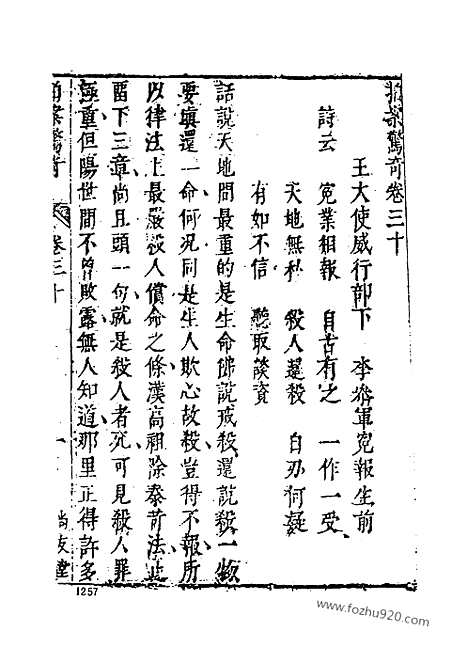 拍案驚奇卷三十
王大使威行部下　李參軍冤報生前
詩云　冤業相報　自古有之　一作一受
天地無私　殺人還殺　自刃何疑
有如不信　聽取談資
話說天地間最重的是生命佛說戒殺還說殺一物
要填還一命何況同是生人欺心故殺豈得不報所
以律法上最嚴殺人償命之條漢高祖除秦苛法止
留下三章尚且頭一句就是殺人者死可見殺人罪
極重但陽世間不曾敗露無人知道那里正得許多
拍案驚奇　卷三十　一　尚友堂
1257
www.fozhu920.com